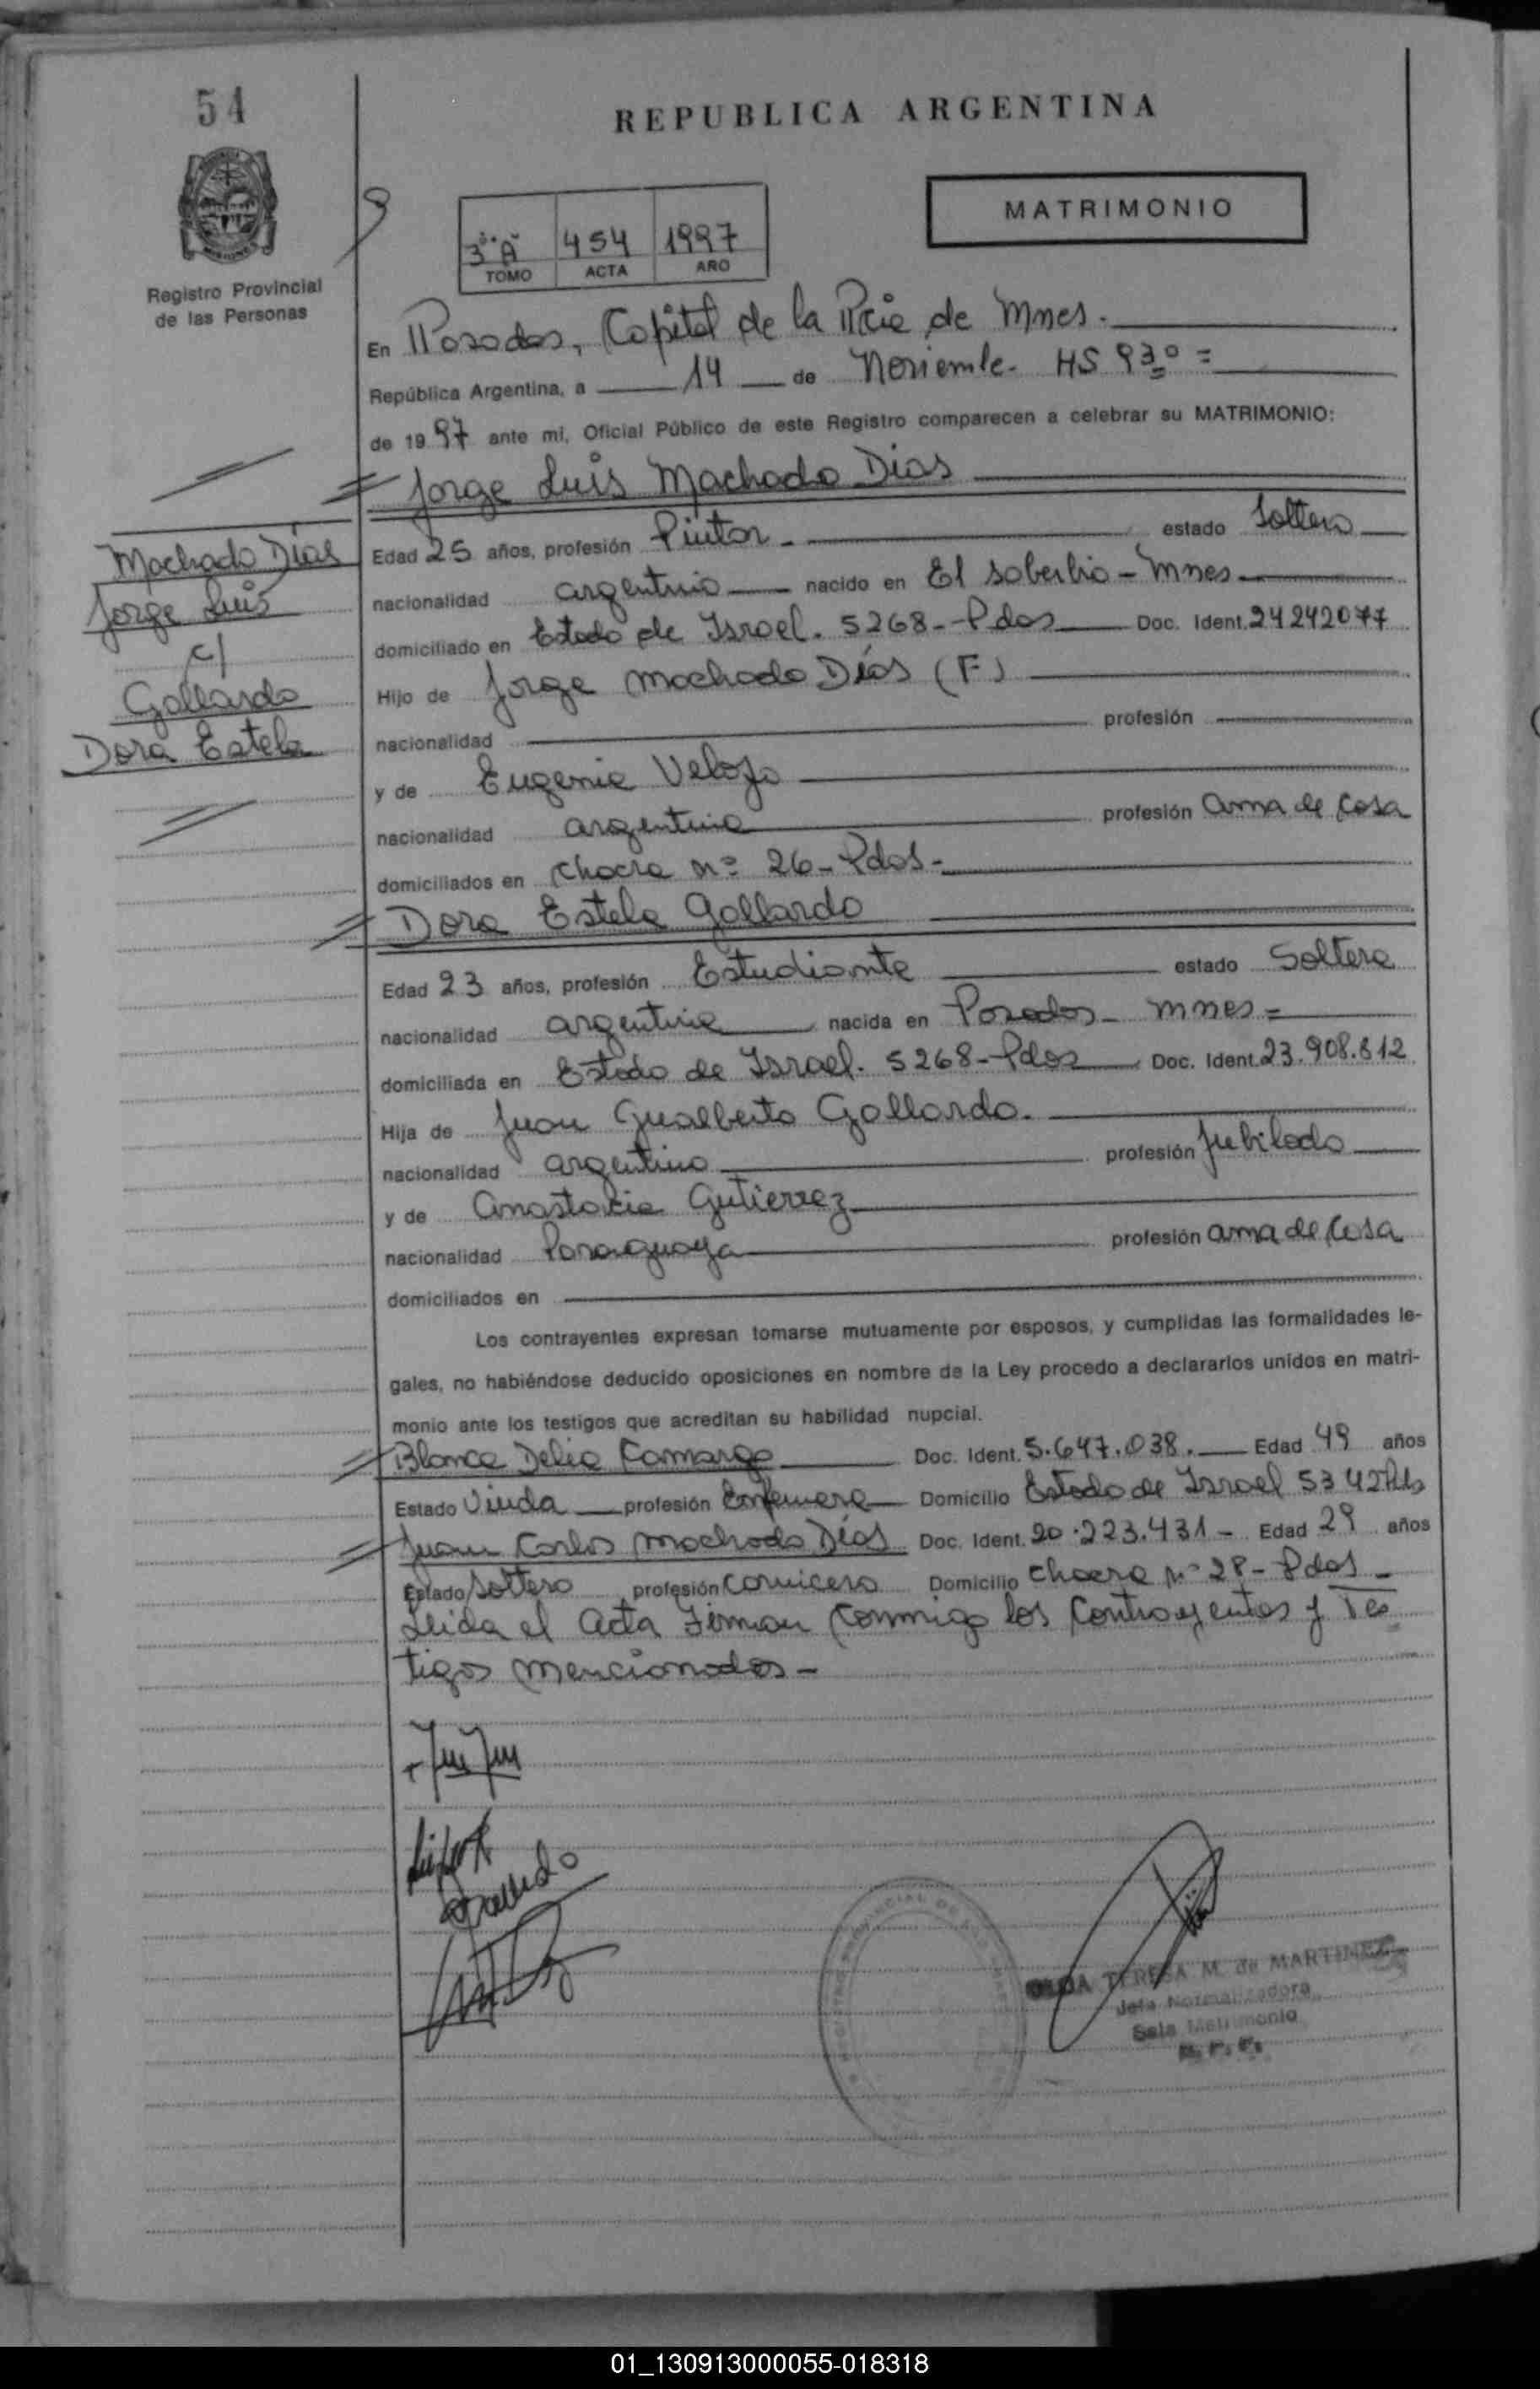 54
REPUBLICA ARGENTINA
MATRIMONIO
3º A 454 1997
TOMO ACTA AÑO
Registro Provincial
de las Personas
En Posadas, Capital de la Pcia de Mnes.
República Argentina, a 14 de Noviembre. HS 9 30 =
de 1997 ante mi, Oficial Público de este Registro comparecen a celebrar su MATRIMONIO:
Jorge Luis Machado Dias
Machado Días
Jorge Luis
c/
Gallardo
Dora Estela
Edad 25 años, profesión Pintor - estado Soltero
nacionalidad argentino nacido en El Soberbio - Mnes
domiciliado en Estado de Israel. 5268 - Pdas Doc. Ident. 24242077
Hijo de Jorge Machado Días (F)
nacionalidad profesión
y de Eugenia Velozo
nacionalidad argentina profesión ama de casa
domiciliados en Chacra Nº 26 - Pdas -
Dora Estela Gallardo
Edad 23 años, profesión Estudiante estado Soltera
nacionalidad argentina nacida en Posadas - Mnes =
domiciliada en Estado de Israel. 5268 - Pdas Doc. Ident. 23.908.812
Hija de Juan Gualberto Gallardo.
nacionalidad argentino profesión Jubilado
y de Anastacia Gutierrez
nacionalidad Paraguaya profesión ama de Casa
domiciliados en
Los contrayentes expresan tomarse mutuamente por esposos, y cumplidas las formalidades le-
gales, no habiéndose deducido oposiciones en nombre de la Ley procedo a declararlos unidos en matri-
monio ante los testigos que acreditan su habilidad nupcial.
Blanca Delia Camargo Doc. Ident. 5.647.038. Edad 49 años
Estado Viuda profesión Enfermera Domicilio Estado de Israel 5342
Juan Carlos Machado Días Doc. Ident. 20.223.431 - Edad 29 años
Estado Soltero profesión Carnicero Domicilio Chacra Nº 28 - Pdas -
Leida el Acta Firman Conmigo los Contrayentes y Tes
tigos mencionados -
Gallardo
TERESA M. de MARTINEZ
Jefa Normalizadora
Sala Matrimonio
R. P. P.
01_130913000055-018318